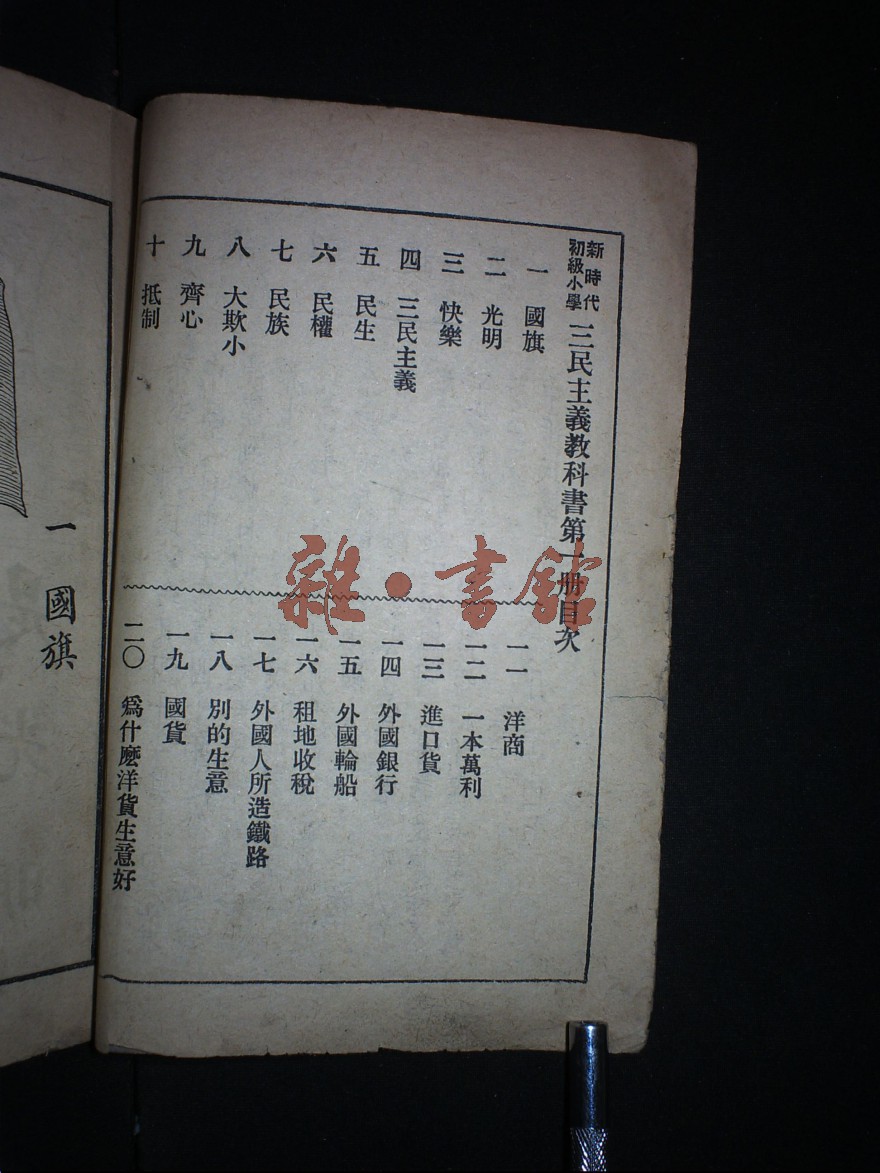 新時代
初級小學
三民主義教科書第一冊目次
一 國旗
二 光明
三 快樂
四 三民主義
五 民生
六 民權
七 民族
八 大欺小
九 齊心
十 抵制
一一 洋商
一二 一本萬利
一三 進口貨
一四 外國銀行
一五 外國輪船
一六 租地收稅
一七 外國人所造鐵路
一八 別的生意
一九 國貨
二〇 爲什麽洋貨生意好
一 國旗
雜·書館